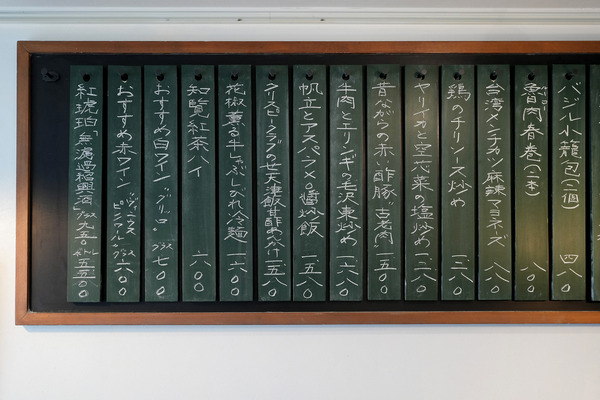 バジル小籠包（三個） 四八〇
魯肉春巻（二本） 八〇〇
台湾メンチカツ 麻辣マヨネーズ 八八〇
鶏のチリソース炒め 一二八〇
ヤリイカと空芯菜の塩炒め 一三八〇
昔ながらの赤い酢豚「古老肉」 一五八〇
牛肉とエリンギの毛沢東炒め 一六八〇
帆立とアスパラ XO醤炒飯 一五八〇
クリスピークラブの天津飯 甘酢あんかけ 一五八〇
花椒薫る牛しゃぶしびれ冷麺 一六〇〇
知覧紅茶ハイ 六〇〇
おすすめ白ワイン グラス 七〇〇
おすすめ赤ワイン グラス 六〇〇
紅琥珀「無濾過紹興酒」 グラス 九五〇 ボトル 五五〇〇